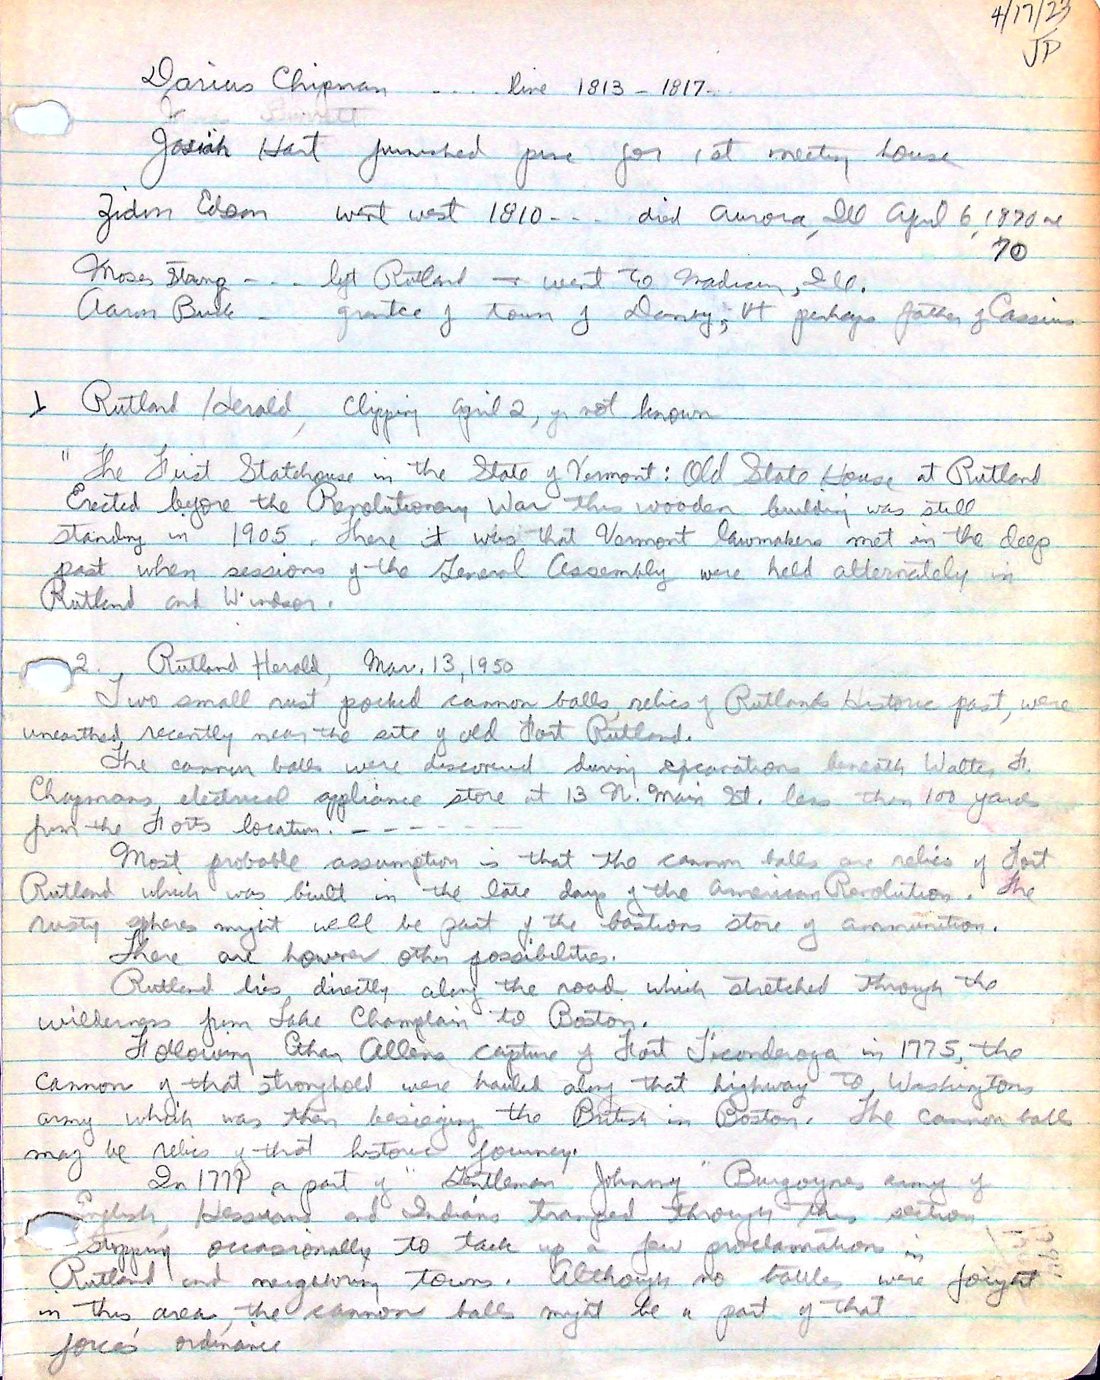 4/17/23
JP
Darius Chipman .... live 1813 - 1817...
Josiah Hart furnished pine for 1st meeting house
Zidon Edson went west 1810 - .. died Aurora, Ill April 6, 1870 ae
70
Moses Strong - - . left Rutland - went to Madison, Ill.
Aaron Buck - grantee of town of Danby, Vt perhaps father of Cassius
1 Rutland Herald, Clipping April 2, yr not known
" The First Statehouse in the State of Vermont: Old State House at Rutland
Erected before the Revolutionary War this wooden building was still
standing in 1905. There it was that Vermont lawmakers met in the deep
past when sessions of the General Assembly were held alternately in
Rutland and Windsor.
2. Rutland Herald, Mar. 13, 1950
Two small rust pocked cannon balls, relics of Rutlands Historic past, were
unearthed recently near the site of old Fort Rutland.
The cannon balls were discovered during excavations beneath Walter F.
Chapmans, electrical appliance store at 13 N. Main St. less than 100 yards
from the Forts location. - - - - - -
Most probable assumption is that the cannon balls are relics of Fort
Rutland which was built in the late days of the American Revolution. The
rusty spheres might well be part of the bastions store of ammunition.
There are however other possibilities.
Rutland lies directly along the road which stretched through the
wilderness from Lake Champlain to Boston.
Following Ethan Allens capture of Fort Ticonderoga in 1775, the
cannon of that stronghold were hauled along that highway to Washingtons
army which was then besieging the British in Boston. The cannon balls
may be relics of that historic journey.
In 1777 a part of "Gentleman Johnny" Burgoynes army of
English, Hessians and Indians tramped through this section
stopping occasionally to tack up a few proclamations in
Rutland and neighboring towns. Although no battles were fought
in this area, the cannon balls might be a part of that
forces' ordinance